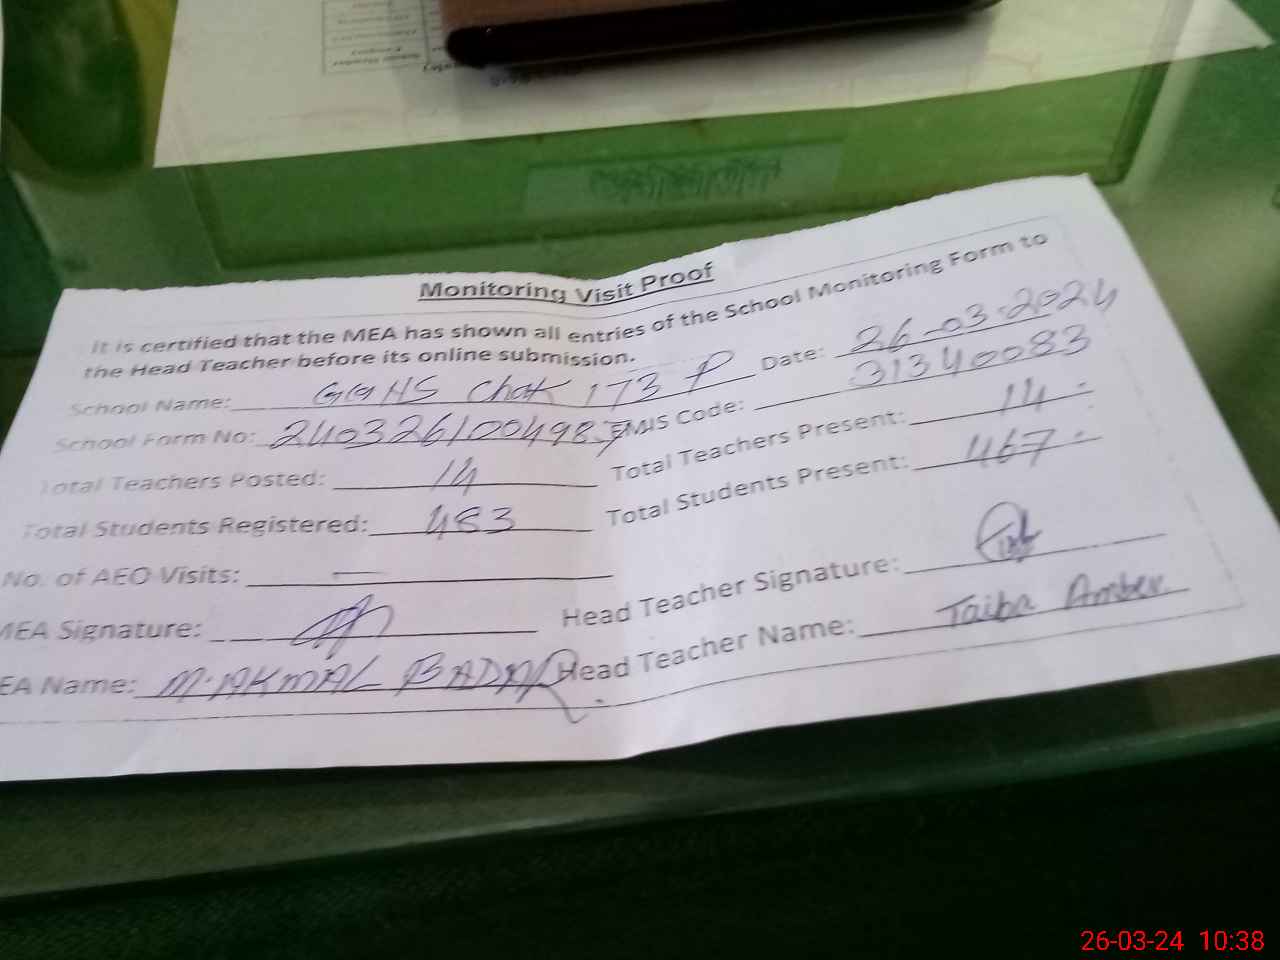 Monitoring Visit Proof
It is certified that the MEA has shown all entries of the School Monitoring Form to
the Head Teacher before its online submission.
School Name: GGHS Chak 173 P Date: 26-03-2024
School Form No: 240326100498 EMIS Code: 31340083
Total Teachers Posted: 14 Total Teachers Present: 14
Total Students Registered: 483 Total Students Present: 467
No. of AEO Visits: —
MEA Signature: Head Teacher Signature:
EA Name: M. AKMAL BADAR Head Teacher Name: Taiba Amber
26-03-24 10:38